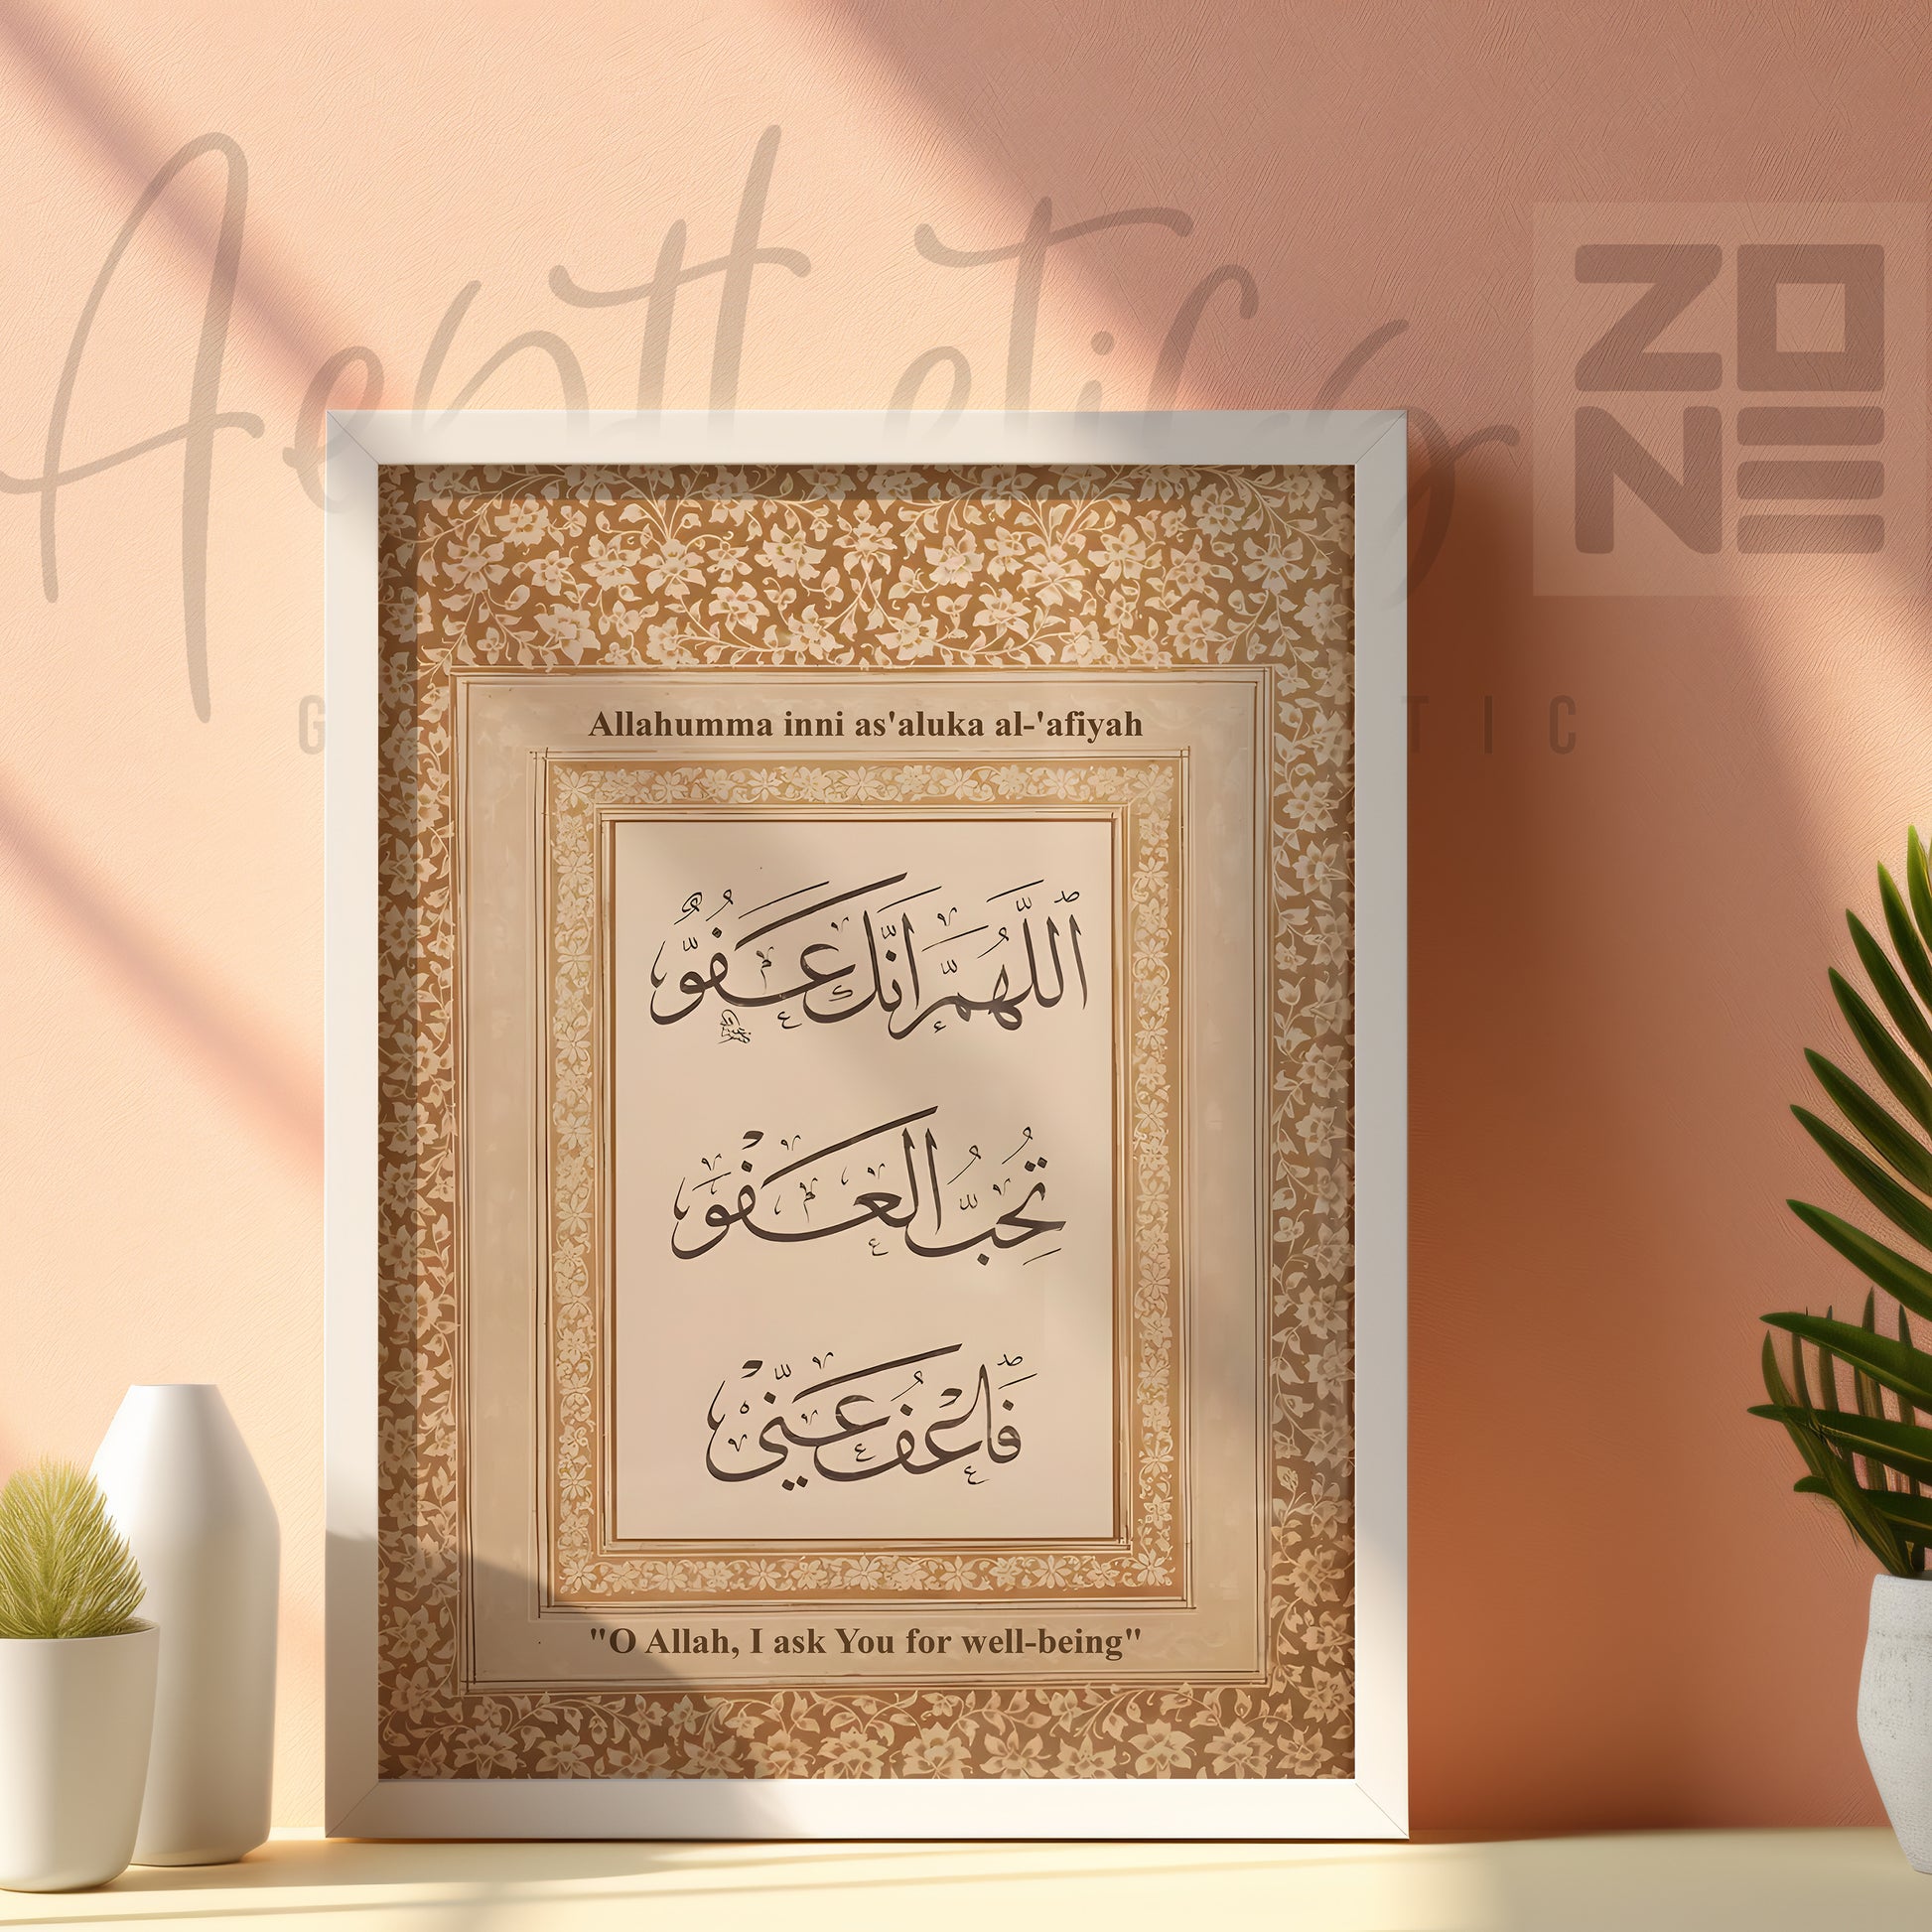 Aesthetics
ZO
NE
G
TIC
Allahumma inni as'aluka al-'afiyah
اللّٰهُمَّ اِنَّكَ عَفُوٌّ
تُحِبُّ الْعَفْوَ
فَاعْفُ عَنِّيْ
"O Allah, I ask You for well-being"